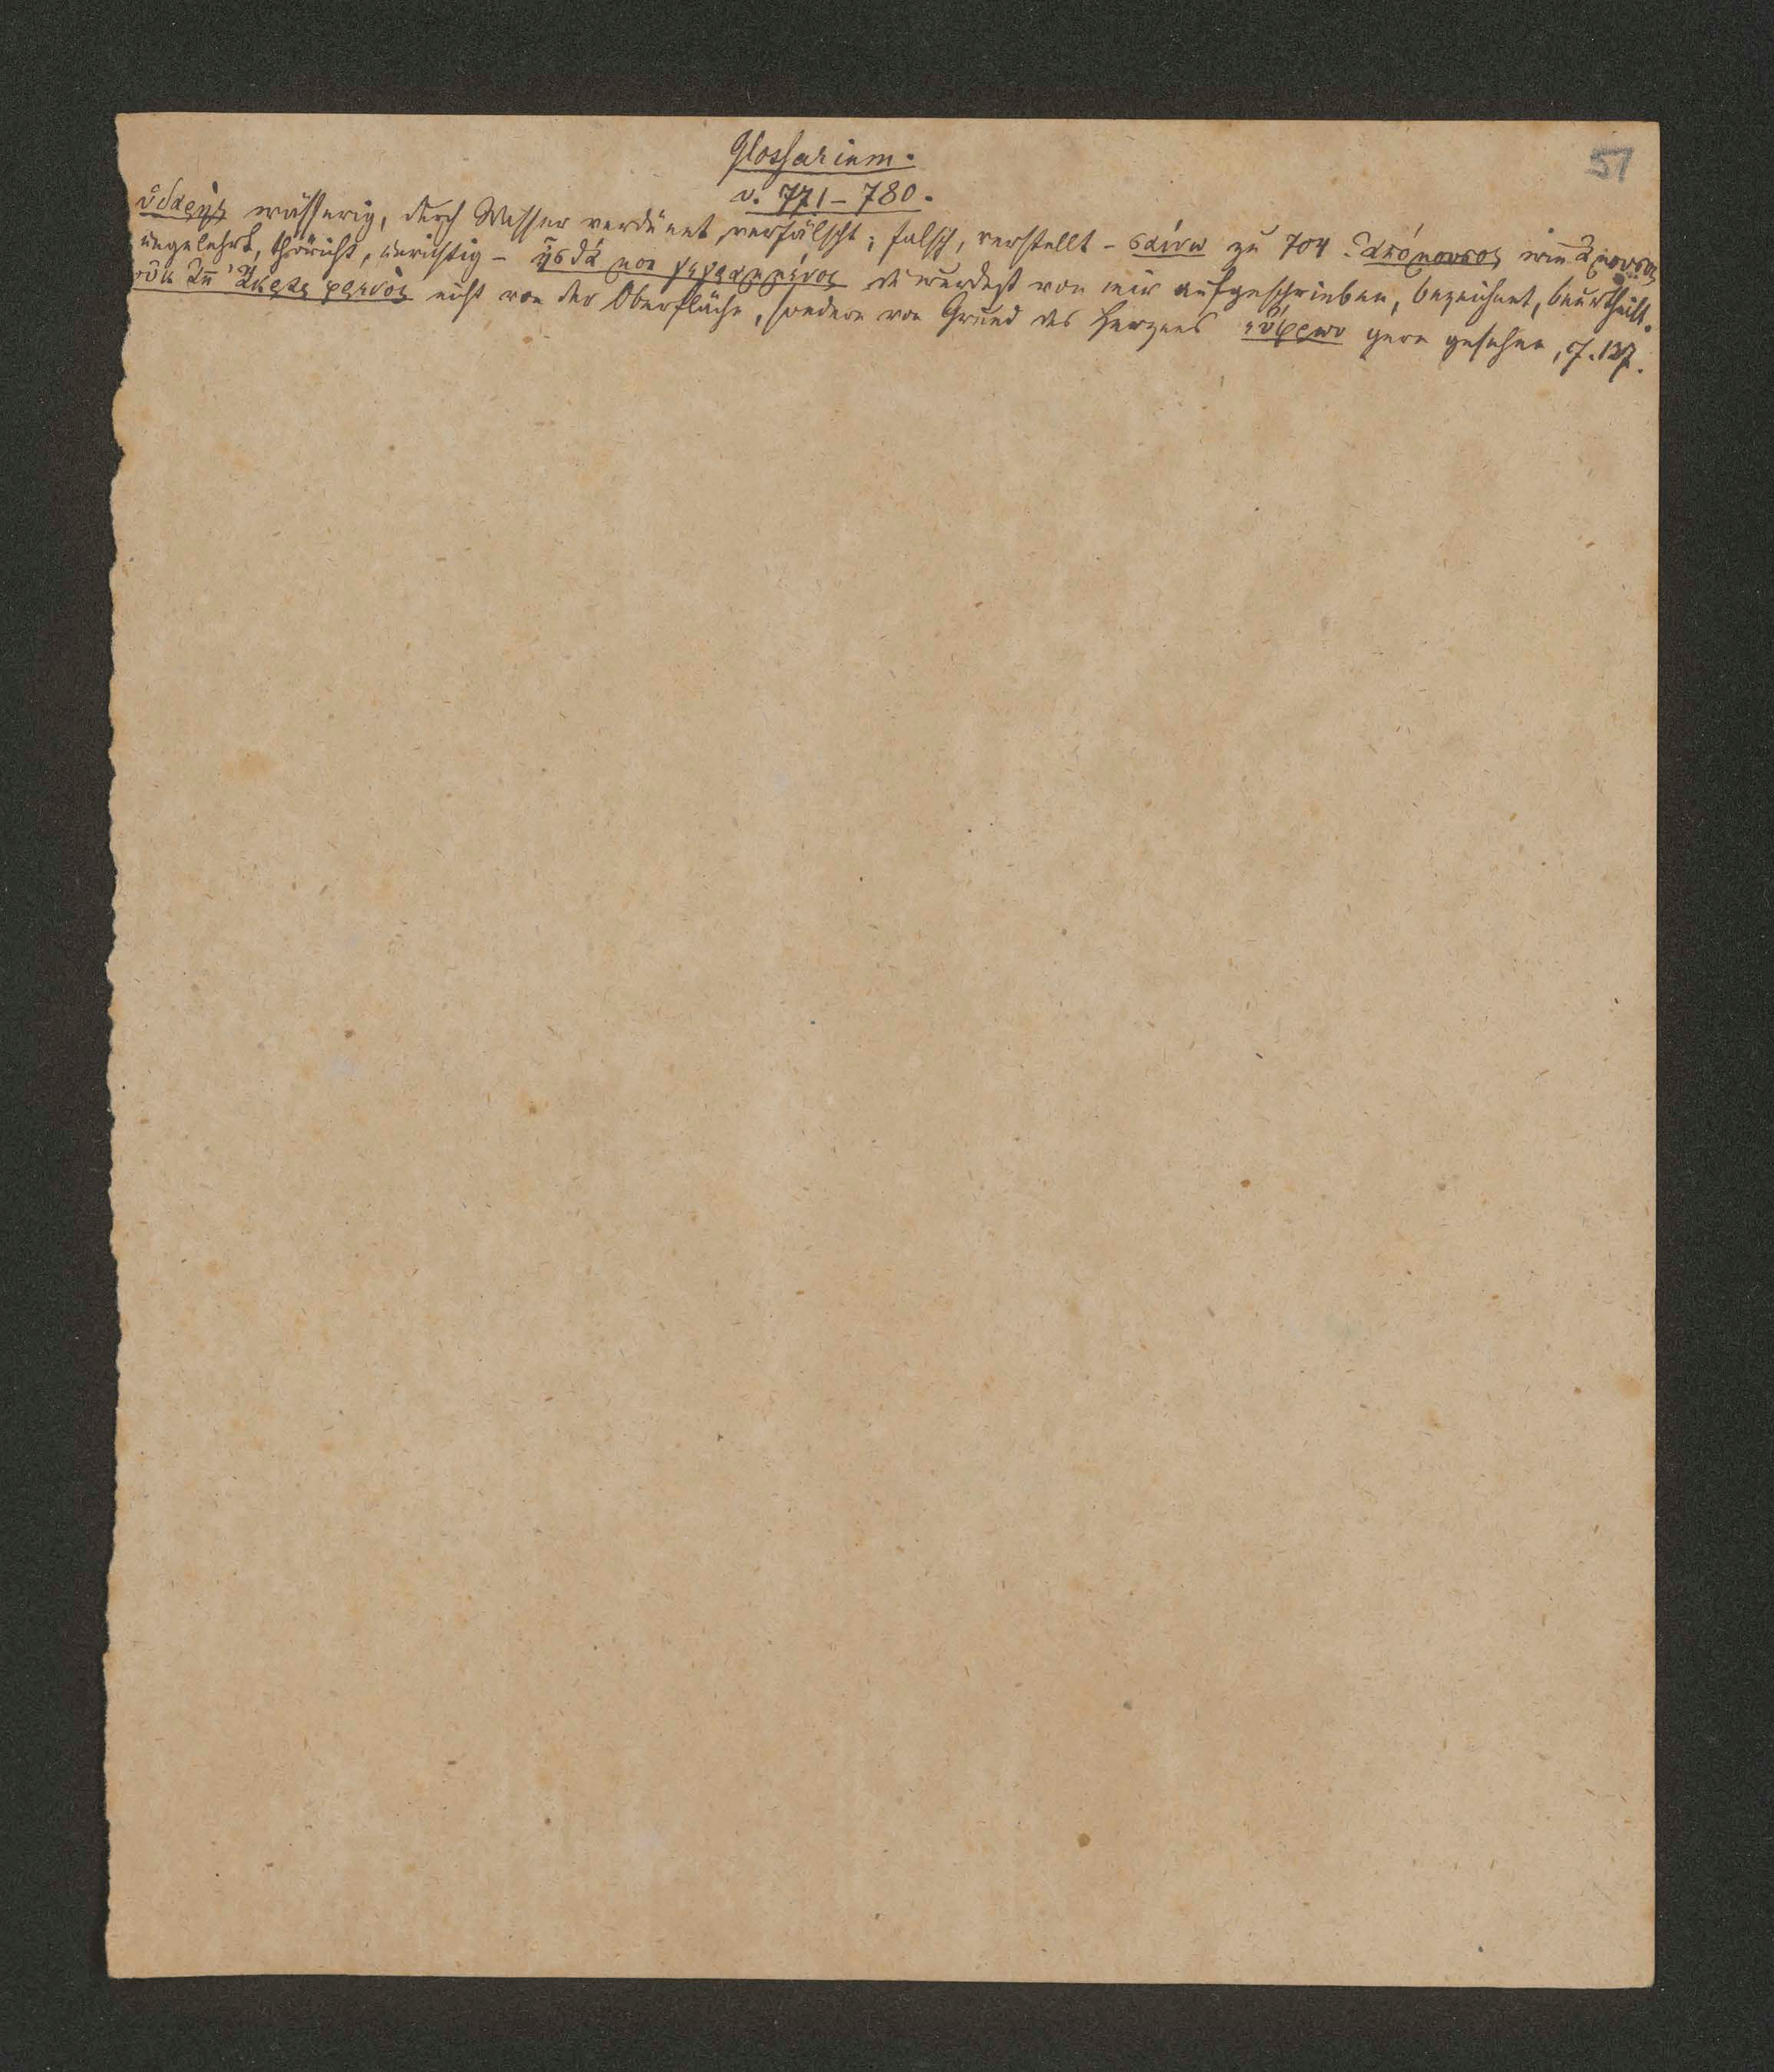 Glossarium.
57
v. 771-780.
ὑδαρὴς wässerig, durch Wasser verdünnt, verfälscht; falsch, verstellt - σαίνω zu 704. ἀπόμουσος wie ἄμουσος
ungelehrt, thöricht, unrichtig - ἦσθά μοι γεγραμμένος du wurdest von mir aufgeschrieben, bezeichnet, beurtheilt.
οὐκ ἀπ' ἄκρας φρενὸς nicht von der Oberfläche, sondern von Grund des Herzens εὔφρων gern gesehen,